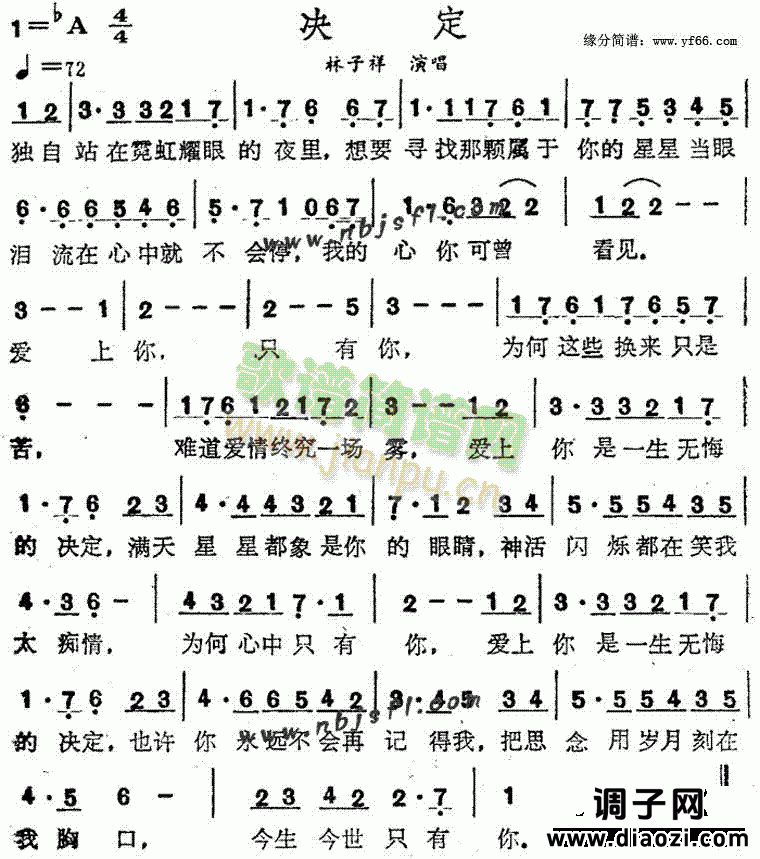 1=♭A 4/4 决 定 缘分简谱：www.yf66.com
♩=72 林子祥 演唱
1 2 | 3·3 3 2 1 7 | 1·7 6 6 7 | 1·1 1 7 6 1 | 7 7 5 3 4 5 |
独自站在霓虹耀眼的夜里，想要寻找那颗属于你的星星当眼
6·6 6 5 4 6 | 5·7 1 0 6 7 | 1·6 3 2 2 | 1 2 2 - - |
泪流在心中就不会停，我的心你可曾看见。
www.nbjsfl.com
3 - - 1 | 2 - - - | 2 - - 5 | 3 - - - | 1 7 6 1 7 6 5 7 |
爱上你，只有你，为何这些换来只是
歌谱简谱网
6 - - - | 1 7 6 1 2 1 7 2 | 3 - - 1 2 | 3·3 3 2 1 7 |
苦，难道爱情终究一场雾，爱上你是一生无悔
www.jianpu.cn
1·7 6 2 3 | 4·4 4 3 2 1 | 7·1 2 3 4 | 5·5 5 4 3 5 |
的决定，满天星星都象是你的眼睛，神活闪烁都在笑我
4·3 6 - | 4 3 2 1 7·1 | 2 - - 1 2 | 3·3 3 2 1 7 |
太痴情，为何心中只有你，爱上你是一生无悔
1·7 6 2 3 | 4·6 6 5 4 2 | 3·4 5 3 4 | 5·5 5 4 3 5 |
www.nbjsfl.com
的决定，也许你永远不会再记得我，把思念用岁月刻在
4·5 6 - | 2 3 4 2 2·7 | 1
我胸口，今生今世只有你。
调子网
www.diaozi.com